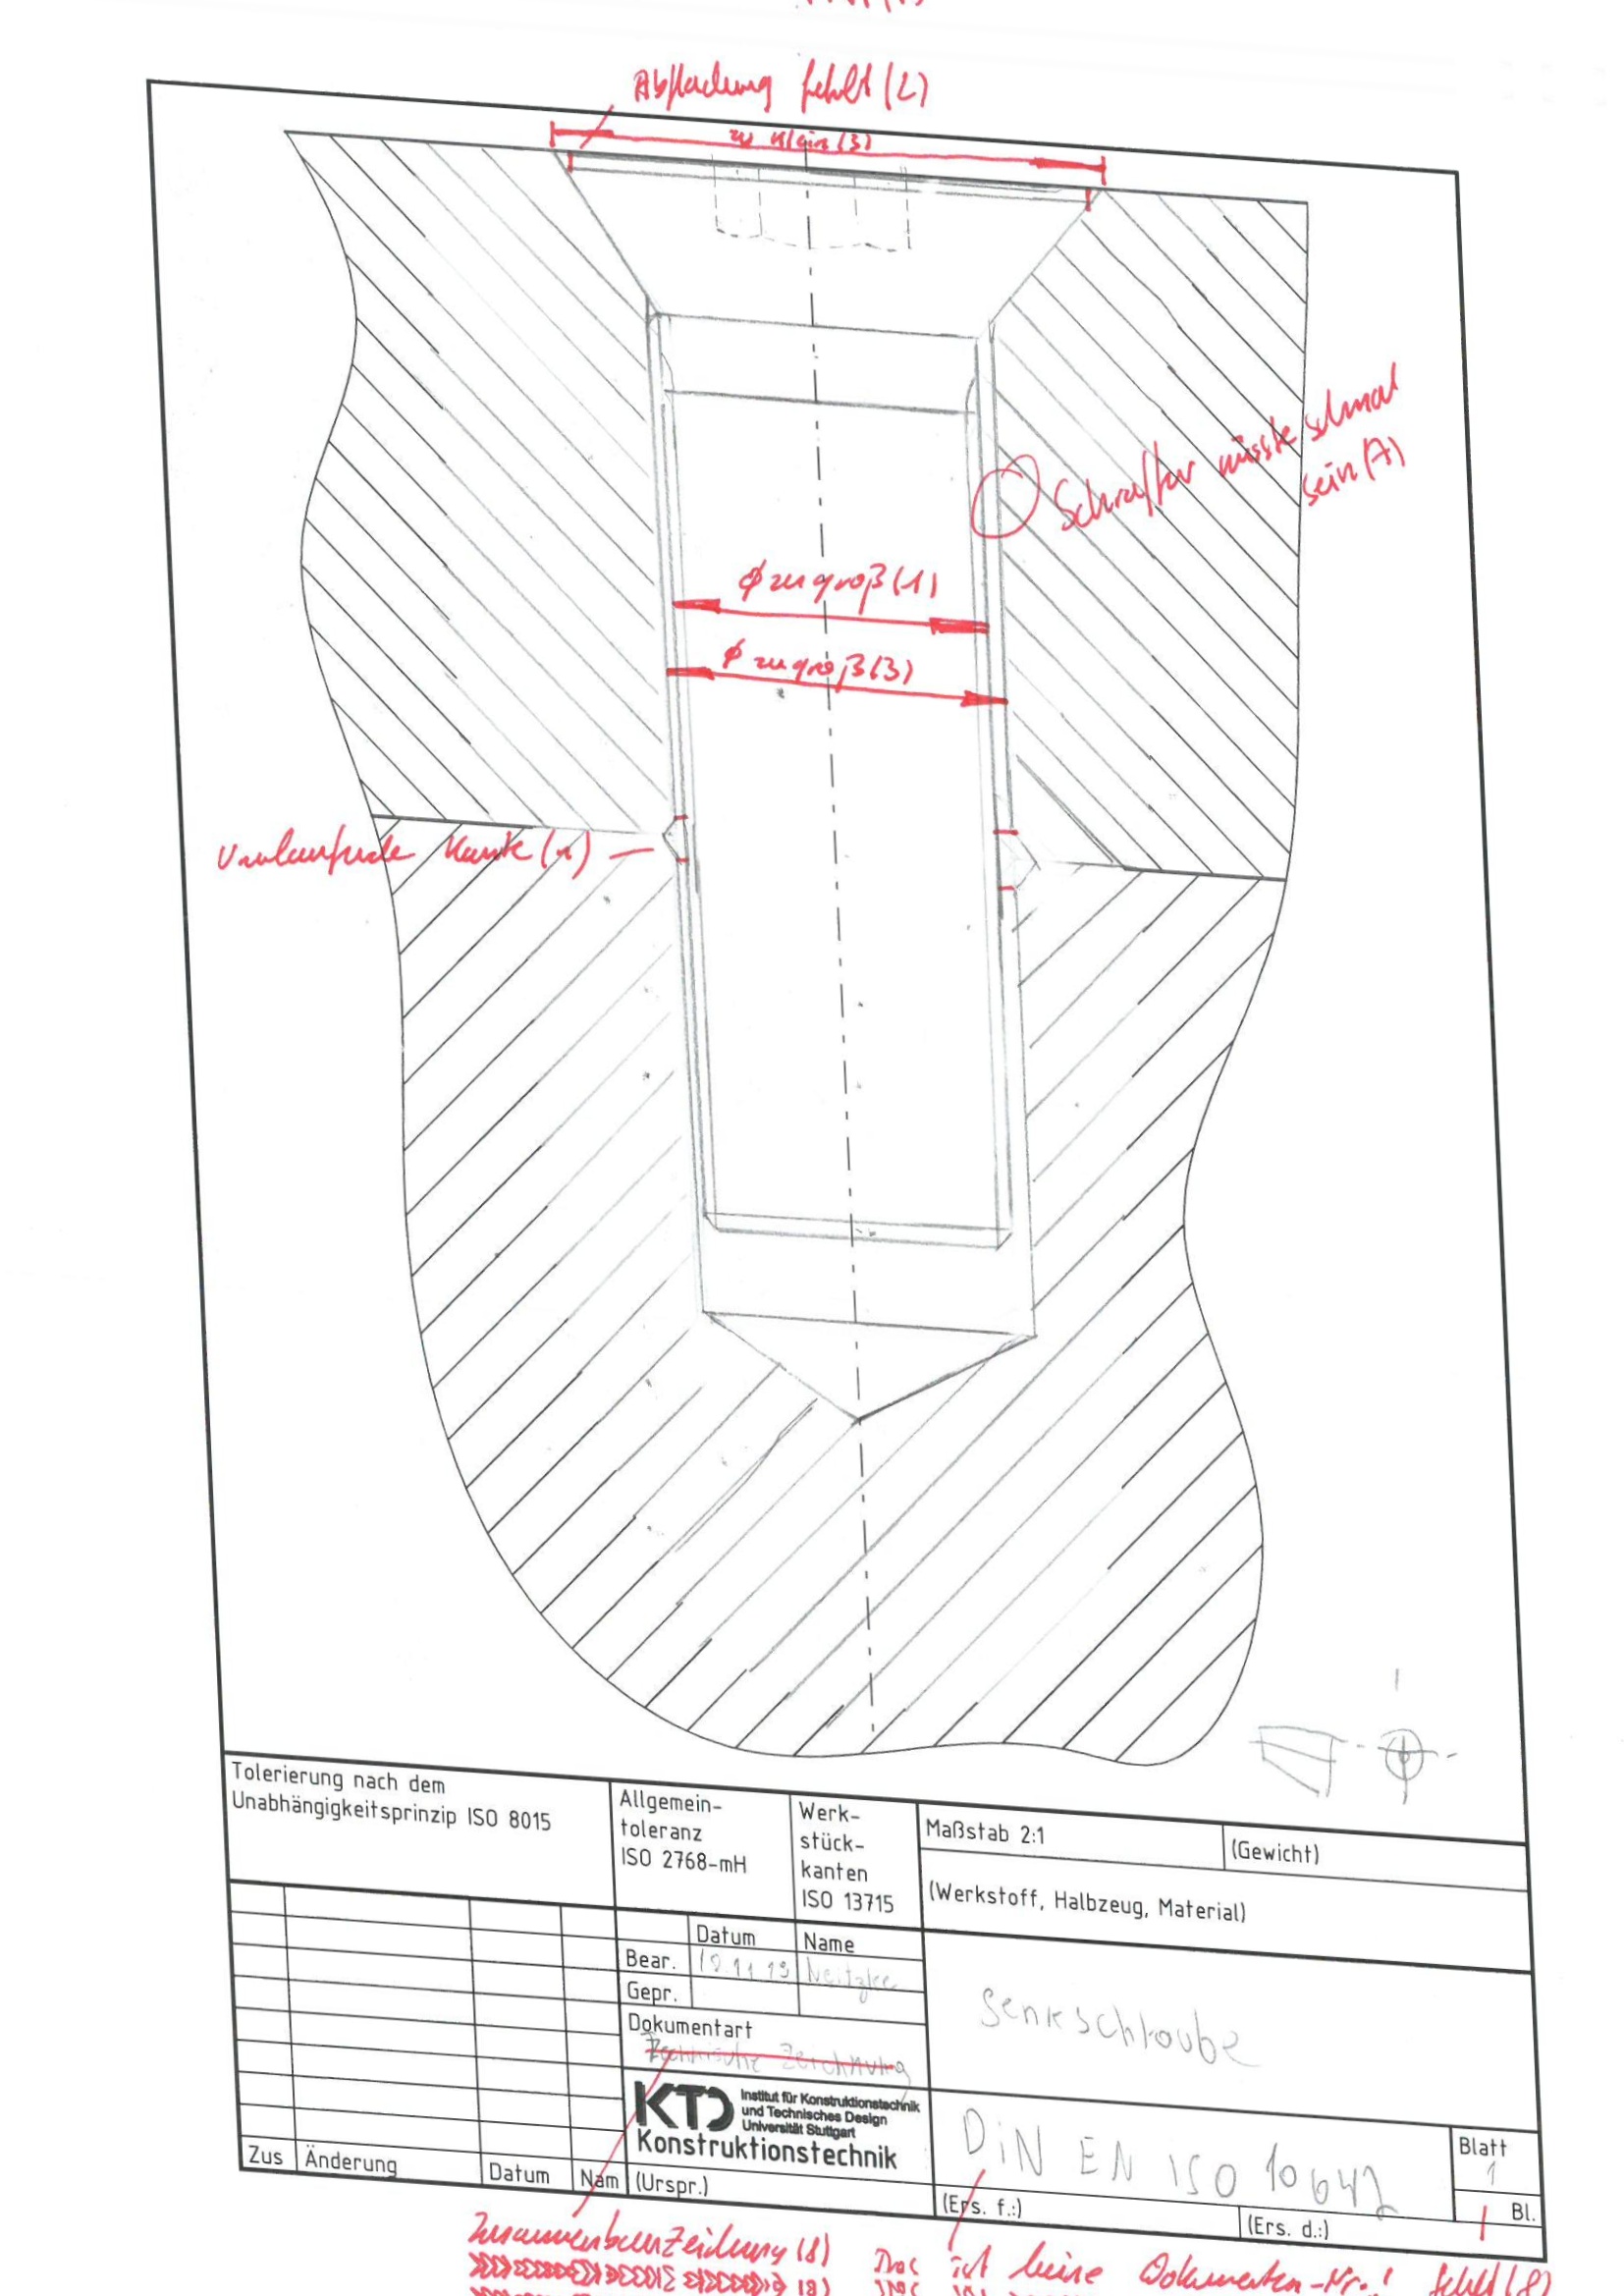 Abflachung fehlt (2)
zu klein (3)
Schraffur müsste schmal
sein (7)
ϕ zu groß (1)
ϕ zu groß (3)
Umlaufende Kante (1)
Tolerierung nach dem
Unabhängigkeitsprinzip ISO 8015
Allgemein-
toleranz
ISO 2768-mH
Werk-
stück-
kanten
ISO 13715
Maßstab 2:1
(Gewicht)
(Werkstoff, Halbzeug, Material)
Datum
Name
Bear.
Gepr.
Dokumentart
Technische Zeichnung
Senkschraube
KTD
Institut für Konstruktionstechnik
und Technisches Design
Universität Stuttgart
Konstruktionstechnik
DiN EN ISO 10642
Blatt
1
Bl.
Zus
Änderung
Datum
Nam
(Urspr.)
(Ers. f.:)
(Ers. d.:)
Zusammenbauzeichnung (8)
Das ist keine Dokumenten-Nr.! fehlt (8)